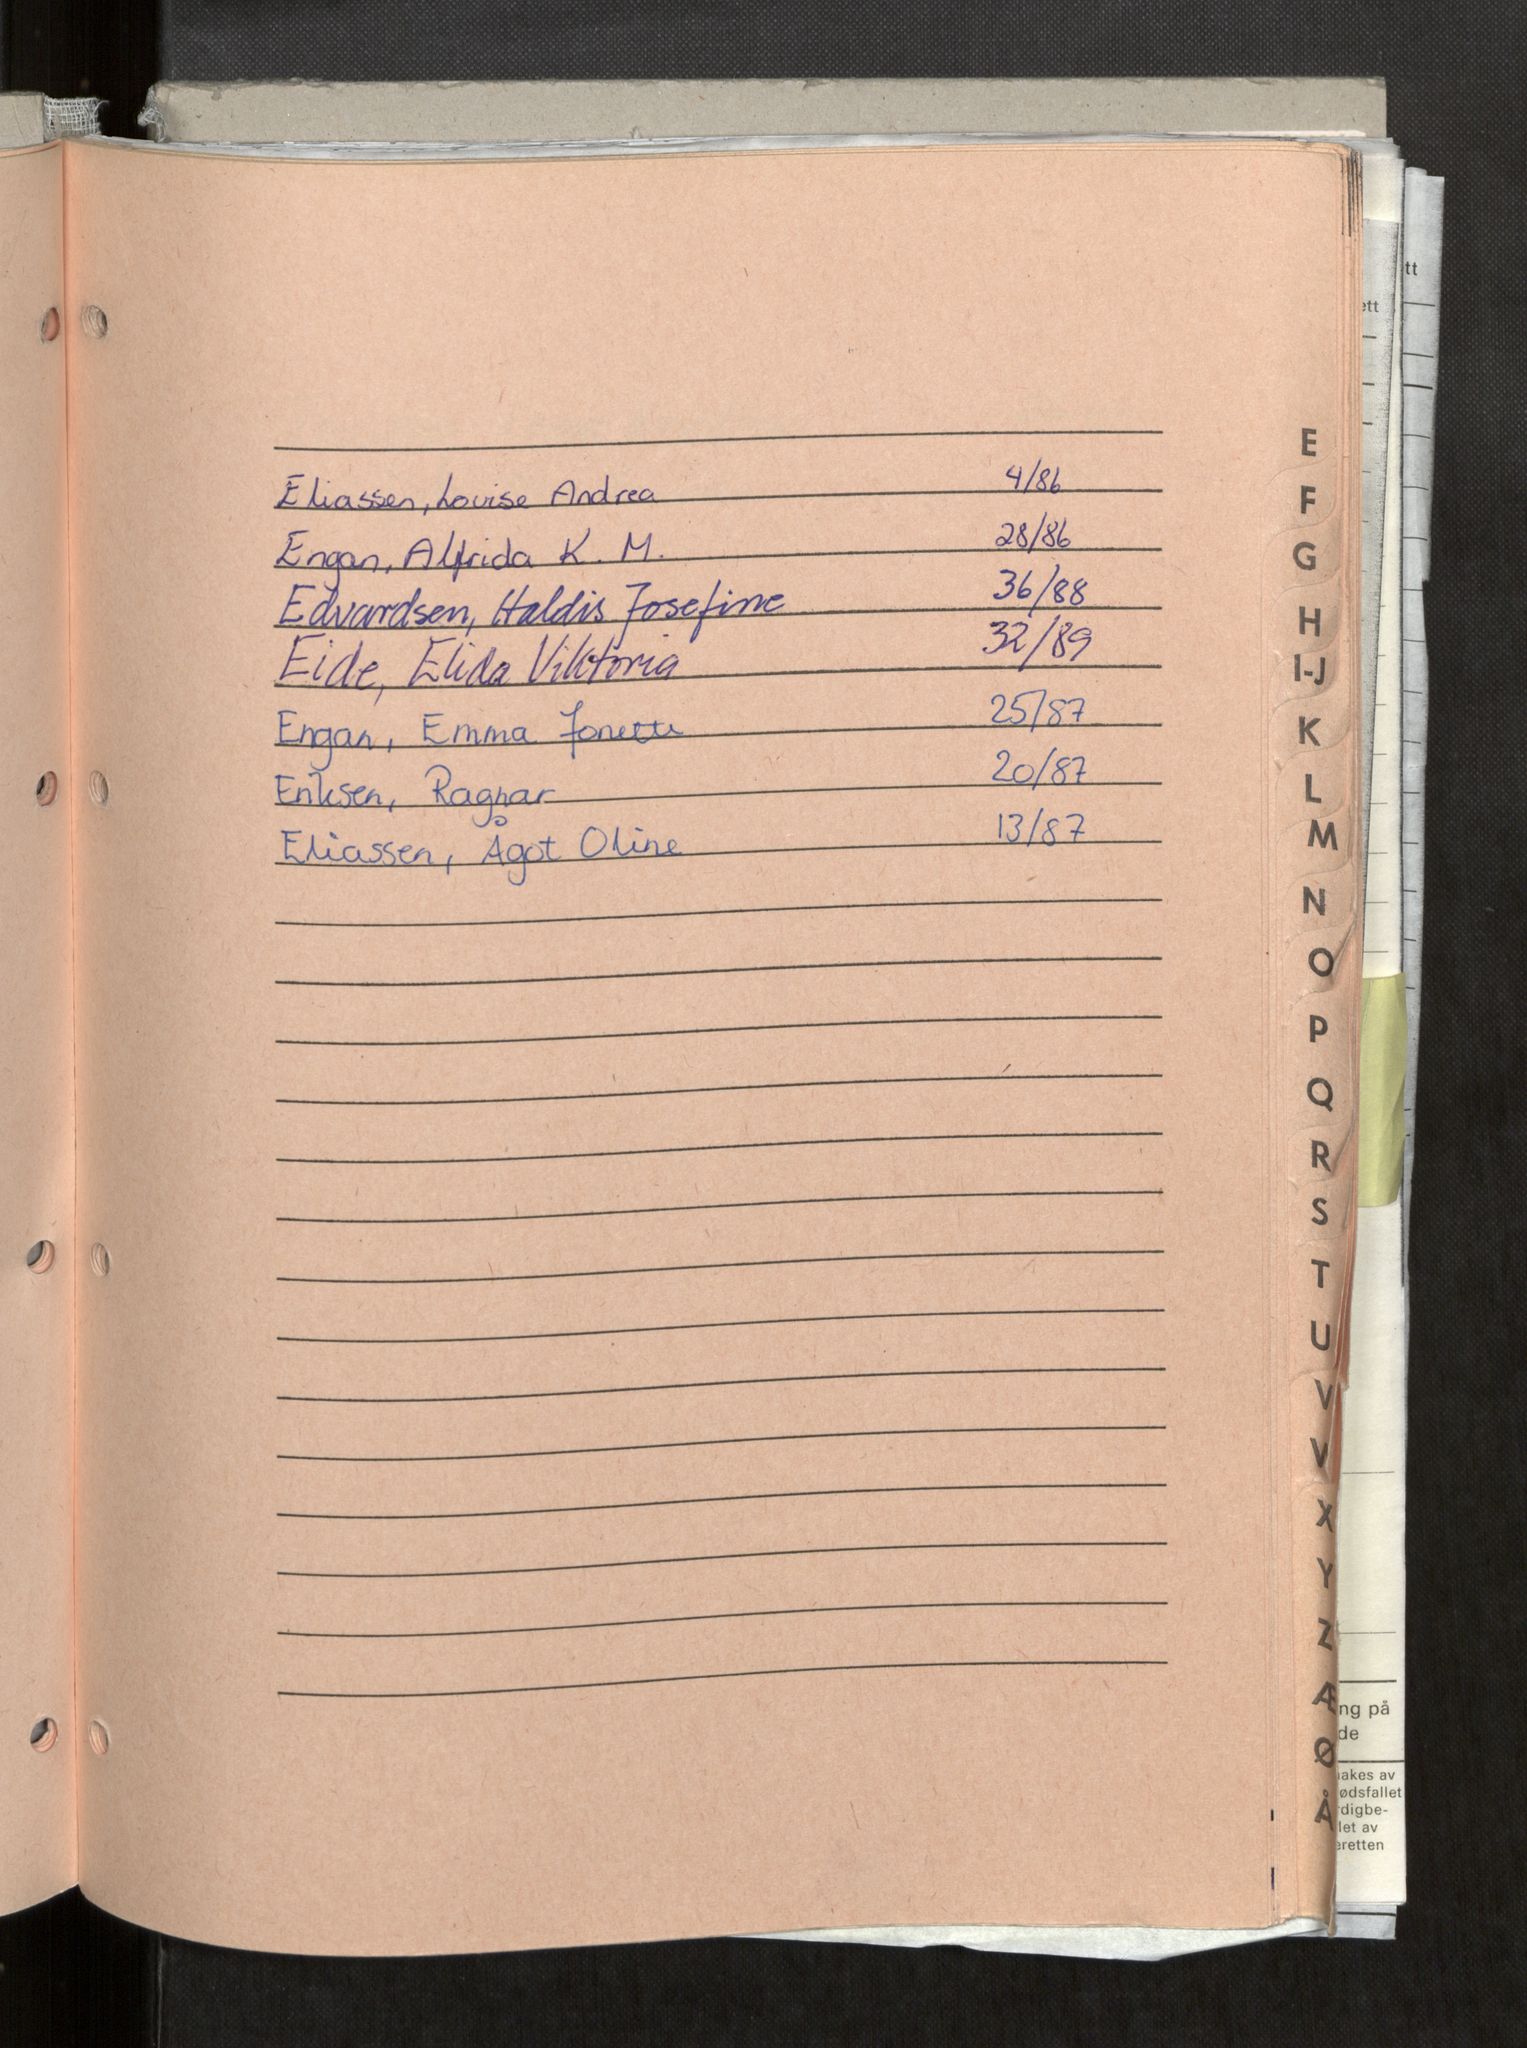 Eliassen, Louise Andrea 4/86
Engan, Alfrida K. M. 28/86
Edvardsen, Haldis Josefine 36/88
Eide, Elida Viktoria 32/89
Engan, Emma Jonette 25/87
Eriksen, Ragnar 20/87
Eliassen, Ågot Oline 13/87
E
F
G
H
I-J
K
L
M
N
O
P
Q
R
S
T
U
V
X
Y
Z
Æ
Ø
Å
tt
ett
ng på
de
akes av
ødsfallet
rdigbe-
let av
eretten